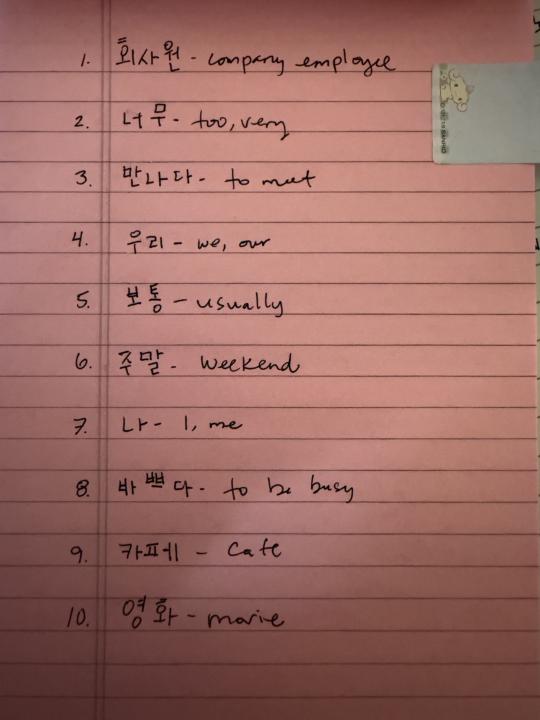 1. 회사원 - company employee
2. 너무 - too, very
3. 만나다 - to meet
4. 우리 - we, our
5. 보통 - usually
6. 주말 - weekend
7. 나 - I, me
8. 바쁘다 - to be busy
9. 카페 - cafe
10. 영화 - movie